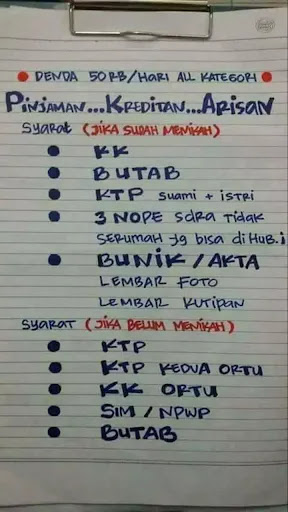 DENDA 50RB/HARI ALL KATEGORI
PINJAMAN...KREDITAN...ARISAN
SYARAT (JIKA SUDAH MENIKAH)
KK
BUTAB
KTP SUAMI + ISTRI
3 NOPE SDRA TIDAK
SERUMAH YG BISA DI HUB.i
BUNIK / AKTA
LEMBAR FOTO
LEMBAR KUTIPAN
SYARAT (JIKA BELUM MENIKAH)
KTP
KTP KEDUA ORTU
KK ORTU
SIM / NPWP
BUTAB